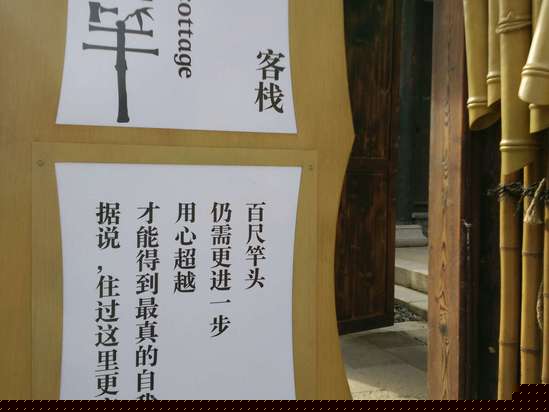 竿
cottage
客栈
百尺竿头
仍需更进一步
用心超越
才能得到最真的自我
据说,住过这里更